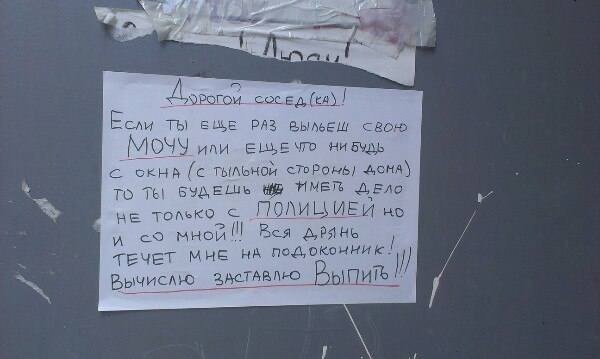 ! Люди!
Дорогой сосед(ка)!
Если ты еще раз выльеш свою
МОЧУ или еще что нибудь
с окна (с тыльной стороны дома)
то ты будешь иметь дело
не только с ПОЛИЦИЕЙ но
и со мной!!! Вся дрянь
течет мне на подоконник!
Вычислю заставлю Выпить!!!